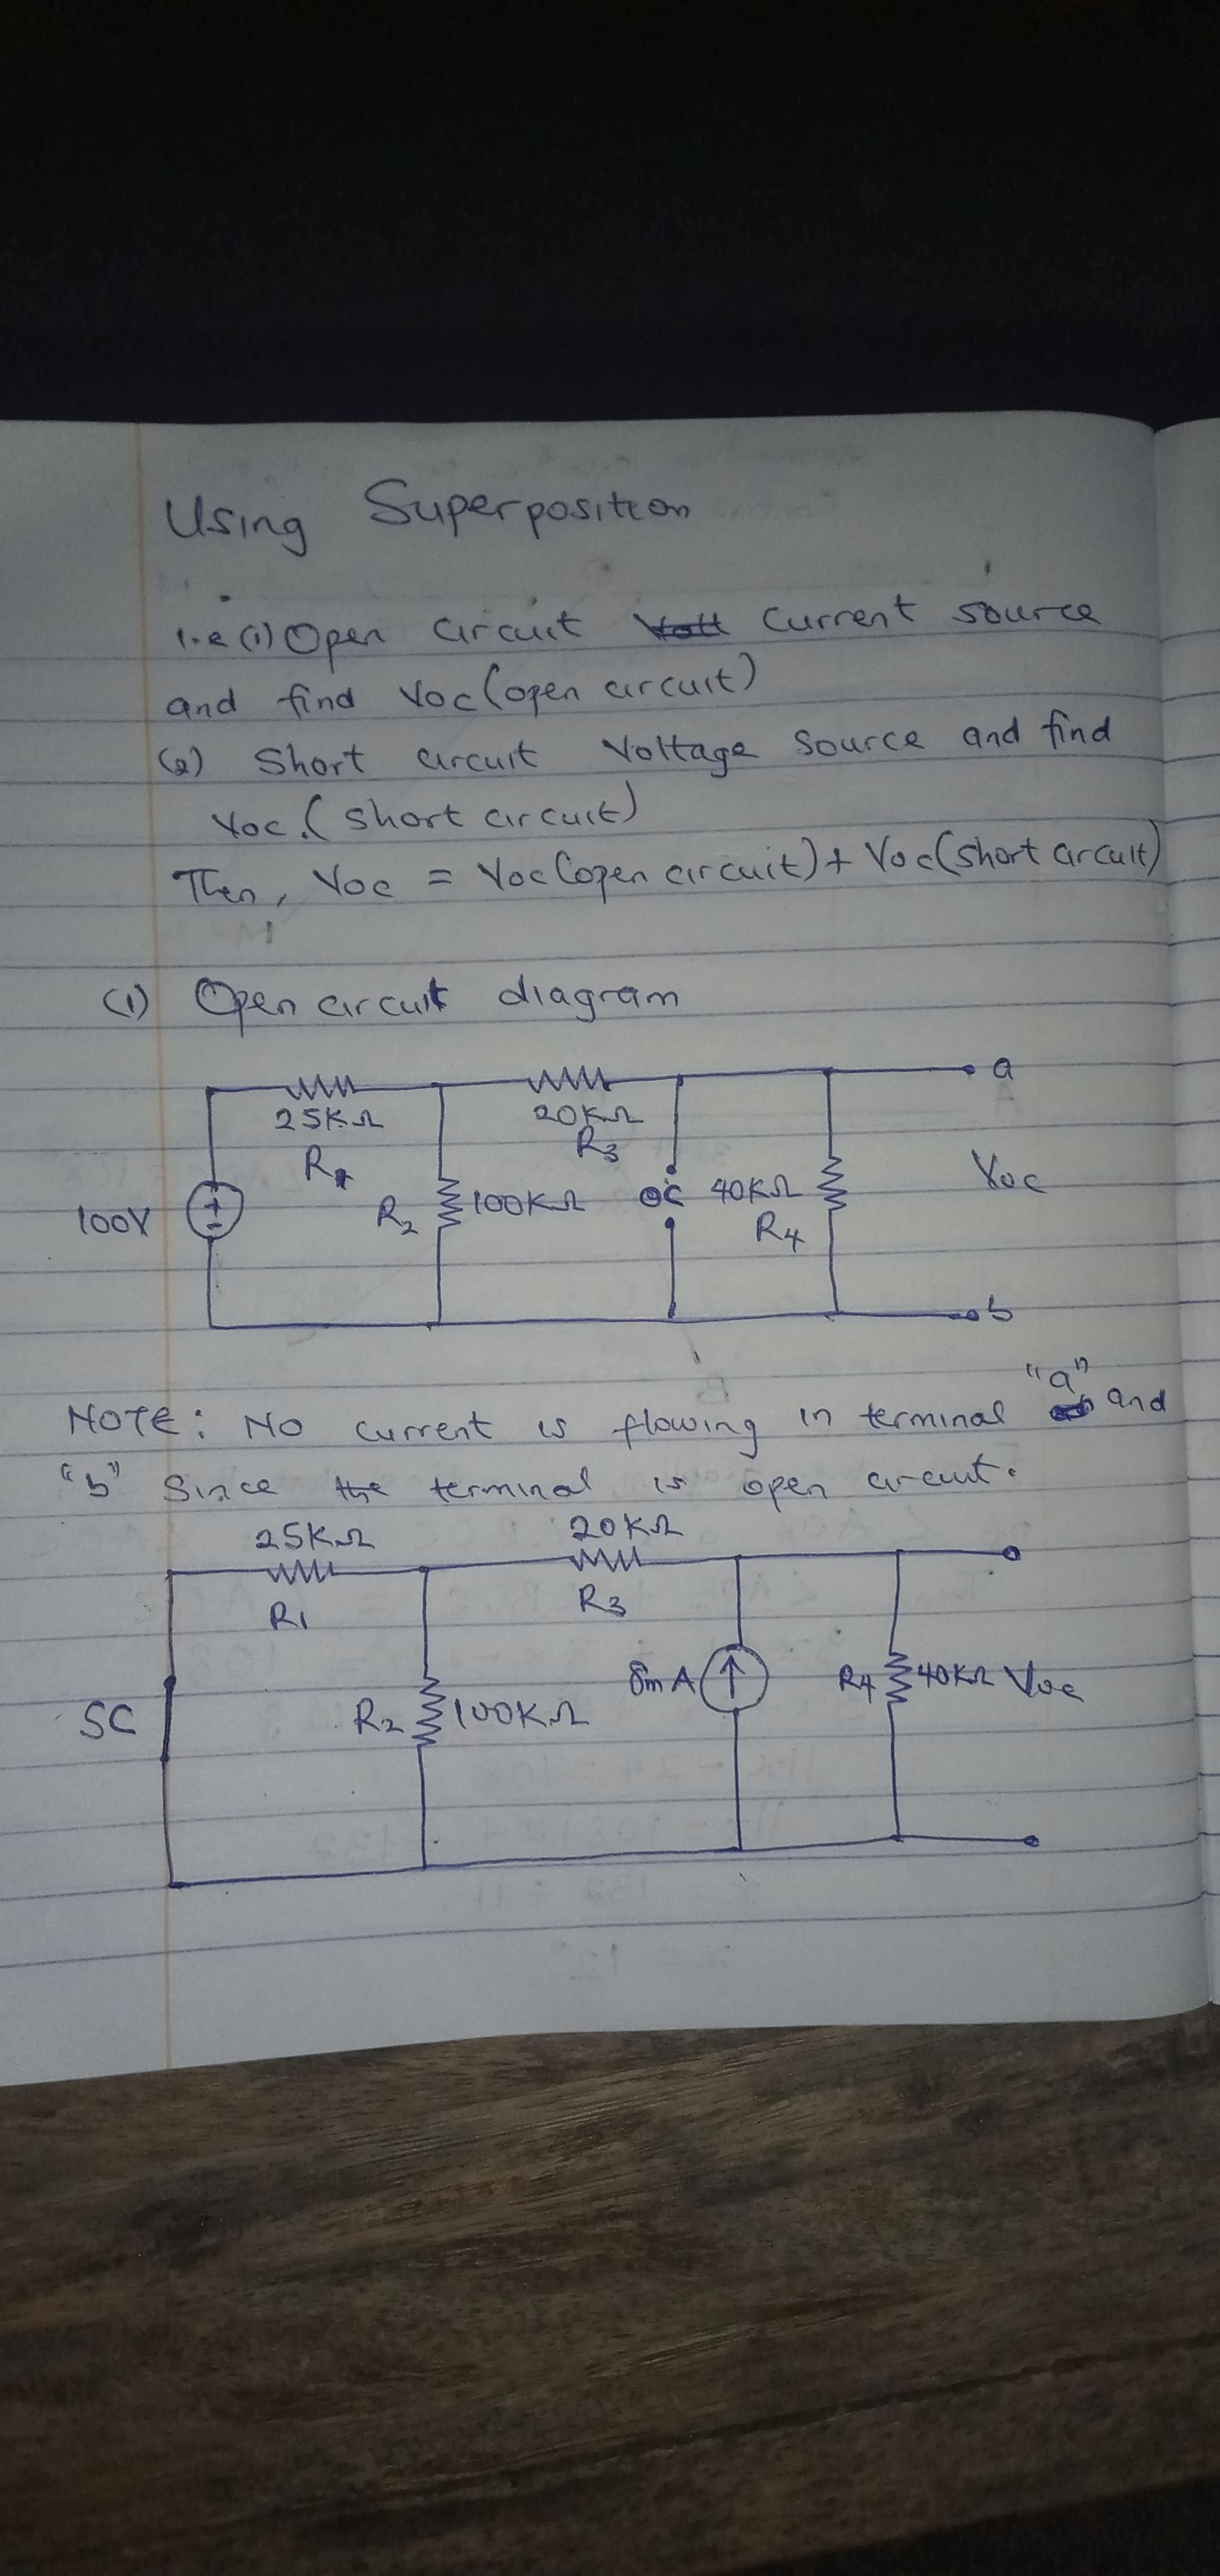 Using Superposition
i.e (1) Open circuit Current source
and find Voc (open circuit)
(2) Short circuit Voltage source and find
Voc. (short circuit)
Then, Voc = Voc (open circuit) + Voc (short circuit)
(1) Open circuit diagram
a
25KΩ
20KΩ
R3
R1
Voc
100V
R2
100KΩ
OC
40KΩ
R4
b
NOTE: No current is flowing in terminal "a" and
"b" since the terminal is open circuit.
25KΩ
20KΩ
R1
R3
8mA
R4
40KΩ
Voc
SC
R2
100KΩ